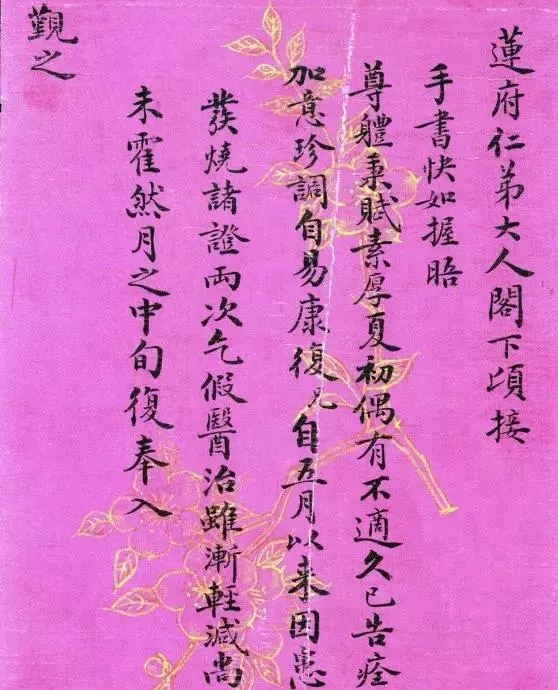 蓮府仁弟大人閣下頃接
手書快如握晤
尊體秉賦素厚夏初偶有不適久已告痊
加意珍調自易康復兄自五月以來因患
發燒諸證両次乞假醫治雖漸輕減尚
未霍然月之中旬復奉入
觐之